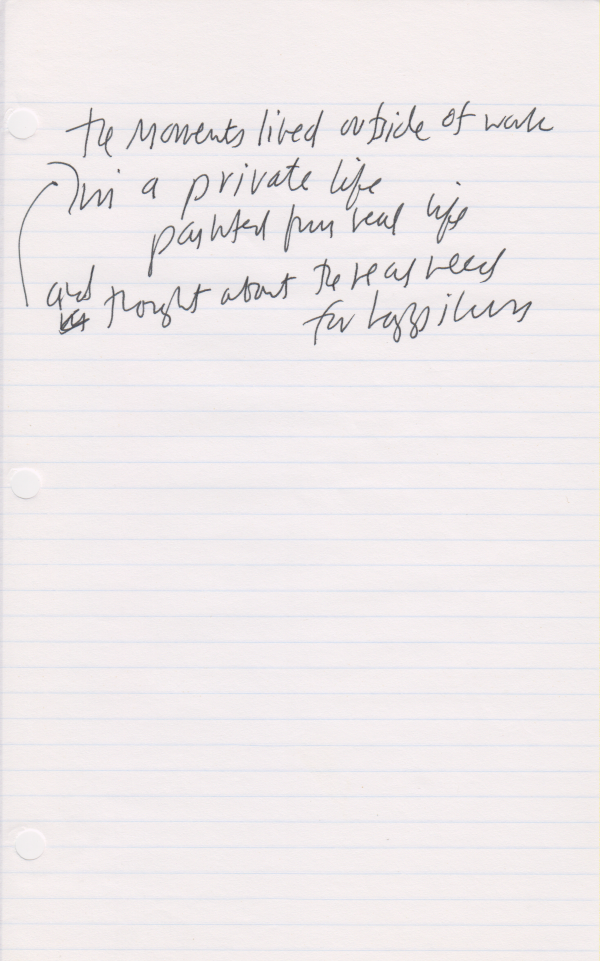 The Moments lived outside of work
in a private life
painted from real life
and thought about the real need
for happiness